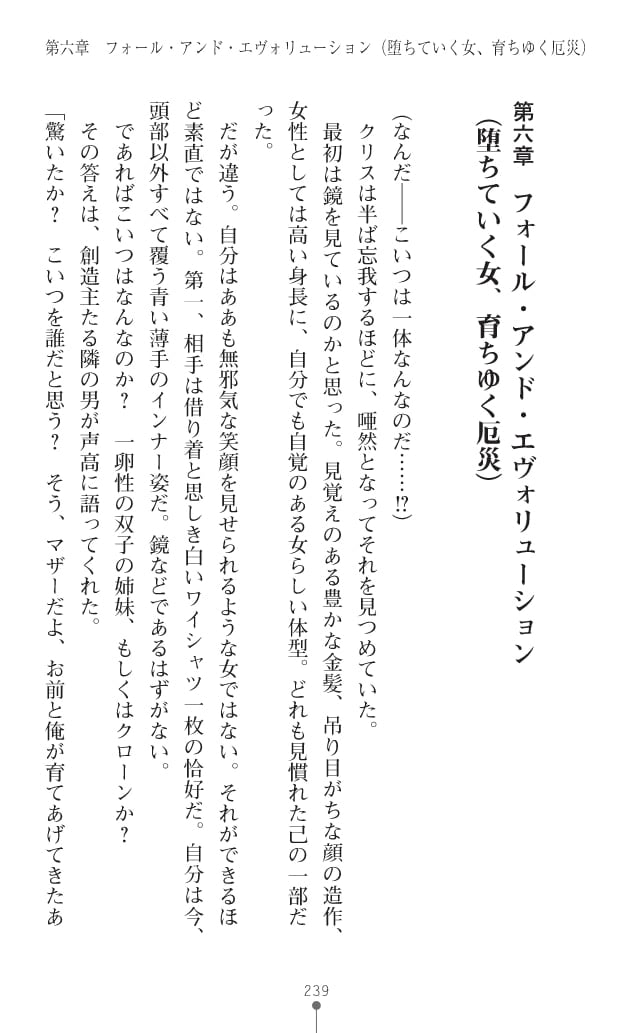 第六章　フォール・アンド・エヴォリューション（堕ちていく女、育ちゆく厄災）
第六章　フォール・アンド・エヴォリューション
（堕ちていく女、育ちゆく厄災）
（なんだ――こいつは一体なんなのだ……!?）
クリスは半ば忘我するほどに、唖然となってそれを見つめていた。
最初は鏡を見ているのかと思った。見覚えのある豊かな金髪、吊り目がちな顔の造作、
女性としては高い身長に、自分でも自覚のある女らしい体型。どれも見慣れた己の一部だ
った。
だが違う。自分はああも無邪気な笑顔を見せられるような女ではない。それができるほ
ど素直ではない。第一、相手は借り着と思しき白いワイシャツ一枚の恰好だ。自分は今、
頭部以外すべて覆う青い薄手のインナー姿だ。鏡などであるはずがない。
であればこいつはなんなのか？　一卵性の双子の姉妹、もしくはクローンか？
その答えは、創造主たる隣の男が声高に語ってくれた。
「驚いたか？　こいつを誰だと思う？　そう、マザーだよ、お前と俺が育てあげてきたあ
239